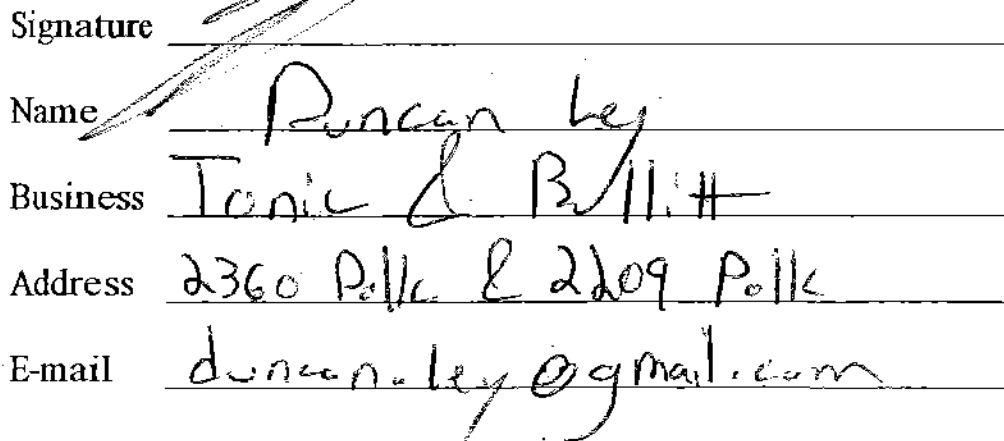 Signature
Name Duncan Ley
Business Tonic & Bullitt
Address 2360 Polk & 2209 Polk
E-mail duncan.ley@gmail.com